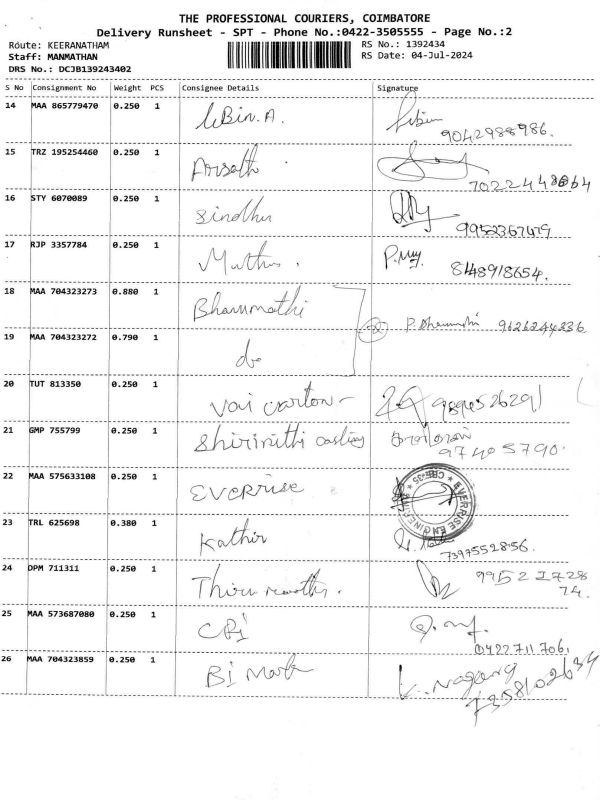 THE PROFESSIONAL COURIERS, COIMBATORE
Delivery Runsheet - SPT - Phone No.:0422-3505555 - Page No.:2
Route: KEERANATHAM RS No.: 1392434
Staff: MANMATHAN RS Date: 04-Jul-2024
DRS No.: DCJB139243402
S No Consignment No Weight PCS Consignee Details Signature
14 MAA 865779470 0.250 1 LiBin.A.
9042988986.
15 TRZ 195254460 0.250 1 Arisath
16 STY 6070089 0.250 1 Sindhu
9952367479
17 RJP 3357784 0.250 1 Muthu. P.
8148918654.
18 MAA 704323273 0.880 1 Bhanumathi
9626244236
19 MAA 704323272 0.790 1 do
20 TUT 813350 0.250 1 Vai carton
21 GMP 755799 0.250 1 Shirinithi casting
97405790.
22 MAA 575633108 0.250 1 EVERRISE
EVERRISE ENGINEERING CBE-35
23 TRL 625698 0.380 1 Kathir
7397552856.
24 DPM 711311 0.250 1 99521728
74.
25 MAA 573687080 0.250 1 CRI
04227117061
26 MAA 704323859 0.250 1 Bi Mark
7358102634